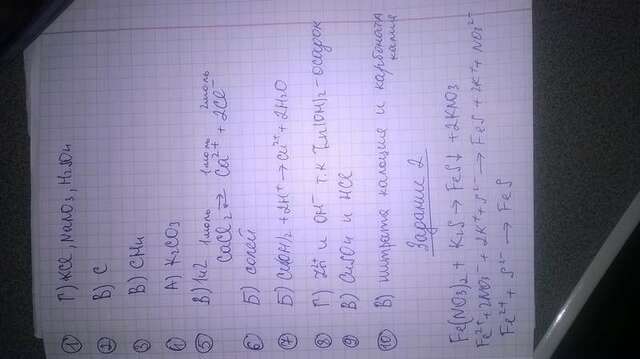 1 Г) KCl, NaNO3, H2SO4
2 В) C
3 В) CH4
4 А) K2CO3
5 В) 1и2 1моль 1моль 2моль
CaCl2 ⇄ Ca2+ + 2Cl-
6 Б) солей
7 Б) Cu(OH)2 + 2H+ → Cu2+ + 2H2O
8 Г) Zn2+ и OH- т.к Zn(OH)2 - осадок
9 В) CuSO4 и HCl
10 В) нитрата кальция и карбоната калия
Задание 2
Fe(NO3)2 + K2S → FeS↓ + 2KNO3
Fe2+ + 2NO3- + 2K+ + S2- → FeS + 2K+ + NO32-
Fe2+ + S2- → FeS